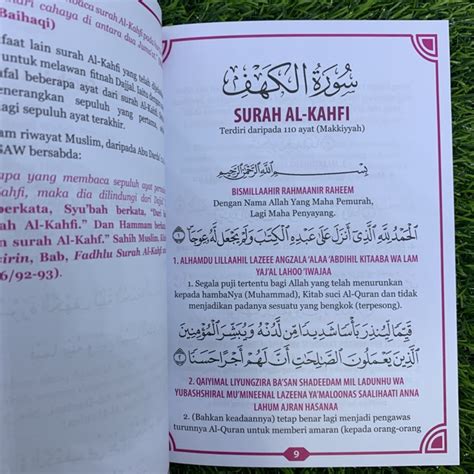 cahaya di antara dua
Baihaqi)
faat lain surah Al-Kahfi yang telah
untuk melawan fitnah Dajjal.
beberapa ayat dari surah Al-
sepuluh yang pertama,
sepuluh ayat terakhir.
m riwayat Muslim, daripada Abu
SAW bersabda:
apa yang membaca sepuluh ayat
Kahfi, maka dia dilindungi dari
berkata, Syu'bah berkata, "Dari
Al-Kahfi." Dan Hammam
surah Al-Kahfi." Sahih Muslim,
Bab, Fadhlu Surah Al-Kahfi
6/92-93).
سُورَةُ الكَهْفِ
SURAH AL-KAHFI
Terdiri daripada 110 ayat (Makkiyyah)
بِسْمِ اللَّهِ الرَّحْمَنِ الرَّحِيمِ
BISMILLAAHIR RAHMAANIR RAHEEM
Dengan Nama Allah Yang Maha Pemurah,
Lagi Maha Penyayang.
الْحَمْدُ لِلَّهِ الَّذِي أَنْزَلَ عَلَىٰ عَبْدِهِ الْكِتَٰبَ وَلَمْ يَجْعَلْ لَهُ عِوَجًا ١
1. ALHAMDU LILLAAHIL LAZEE ANGZALA 'ALAA 'ABDIHIL KITAABA WA LAM
YAJ'AL LAHOO 'IWAJAA
1. Segala puji tertentu bagi Allah yang telah menurunkan
kepada hambaNya (Muhammad), Kitab suci Al-Quran dan tidak
menjadikan padanya sesuatu yang bengkok (terpesong).
قَيِّمًا لِيُنْذِرَ بَأْسًا شَدِيدًا مِنْ لَدُنْهُ وَيُبَشِّرَ الْمُؤْمِنِينَ
الَّذِينَ يَعْمَلُونَ الصَّٰلِحَٰتِ أَنَّ لَهُمْ أَجْرًا حَسَنًا ٢
2. QAIYIMAL LIYUNGZIRA BA'SAN SHADEEDAM MIL LADUNHU WA
YUBASHSHIRAL MU'MINEENAL LAZEENA YA'MALOONAS SAALIHAATI ANNA
LAHUM AJRAN HASANAA
2. (Bahkan keadaannya) tetap benar lagi menjadi pengawas
turunnya Al-Quran untuk memberi amaran (kepada orang-orang
9